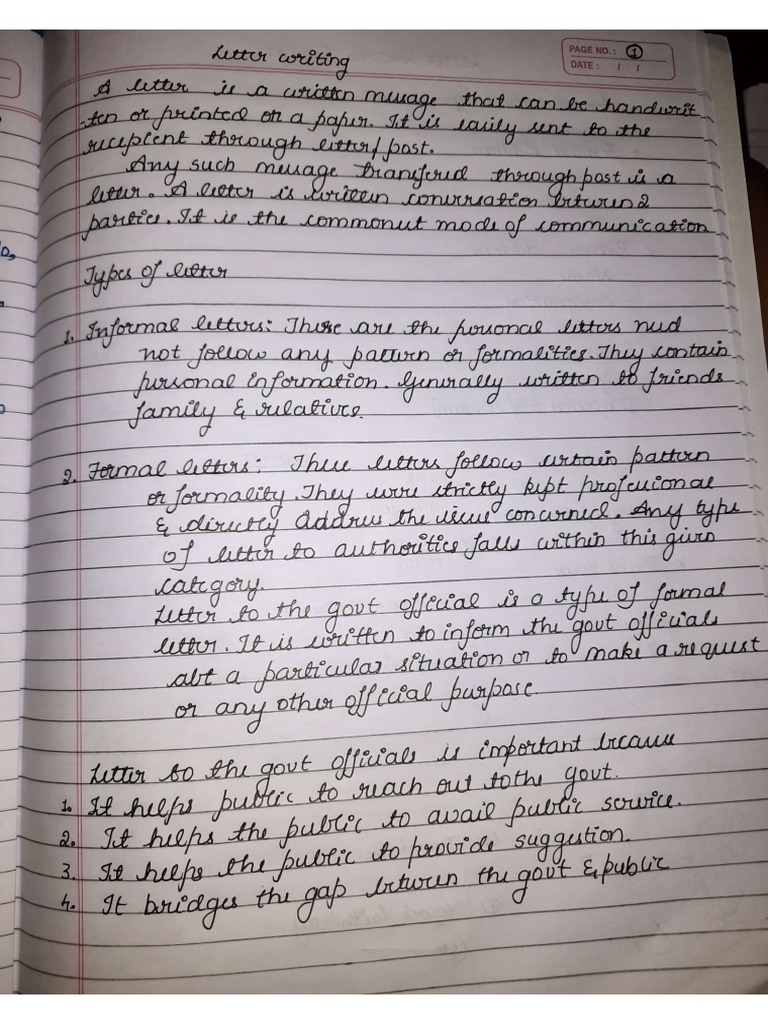 Letter writing
PAGE NO.: 1
DATE: / /
A letter is a written message that can be handwrit
-ten or printed on a paper. It is easily sent to the
recepient through letter/post.
Any such message transfered through post is a
letter. A letter is written conversation between 2
parties. It is the commonest mode of communication
Types of letter
1. Informal letters: These are the personal letters need
not follow any pattern or formalities. They contain
personal information. Generally written to friends
family & relatives.
2. Formal letters: These letters follow certain pattern
or formality. They were strictly kept professional
& directly address the issue concerned. Any type
of letter to authorities falls within this given
category.
Letter to the govt official is a type of formal
letter. It is written to inform the govt officials
abt a particular situation or to make a request
or any other official purpose.
Letter to the govt officials is important because
1. It helps public to reach out to the govt.
2. It helps the public to avail public service.
3. It helps the public to provide suggestion.
4. It bridges the gap between the govt & public